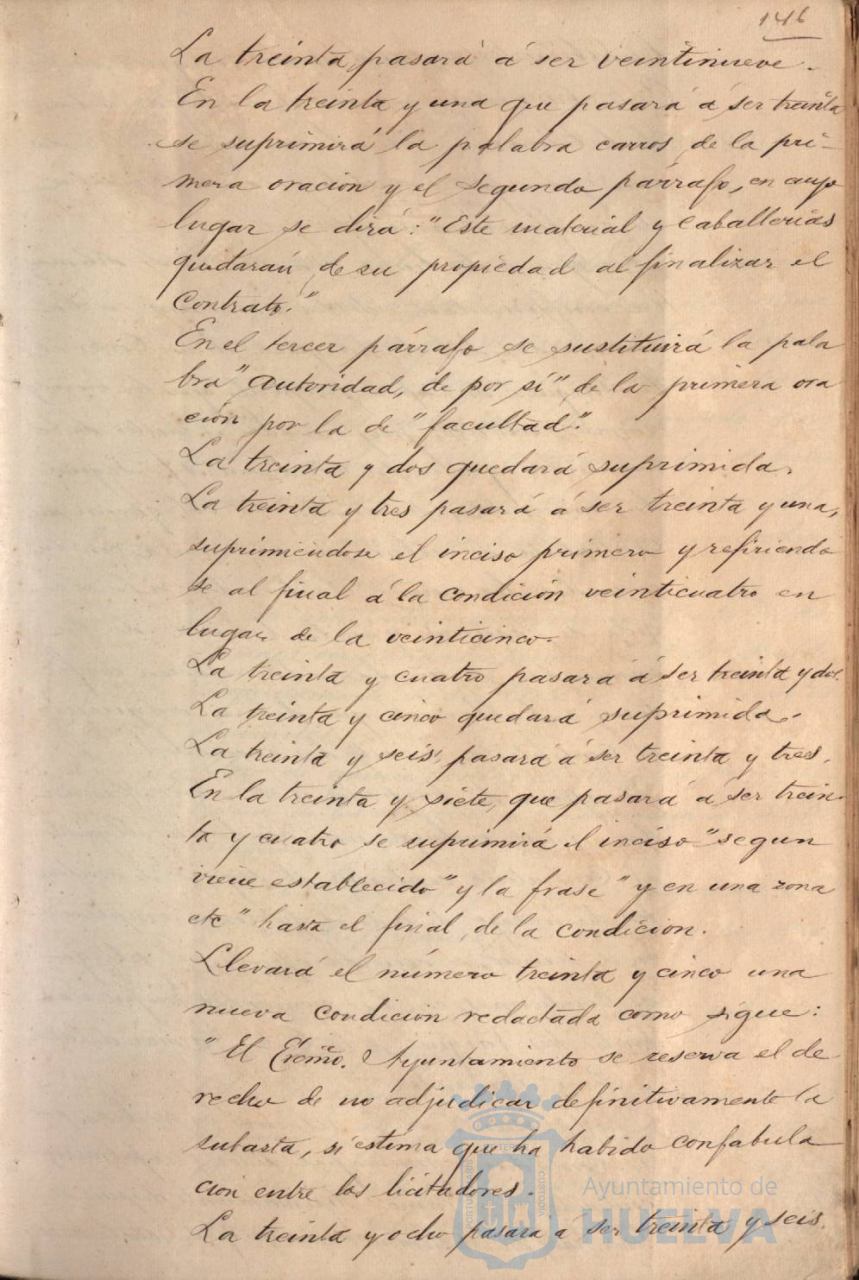 146
La treinta pasará á ser veintinueve.
En la treinta y una que pasará á ser treinta
se suprimirá la palabra carros de la pri-
mera oracion y el segundo párrafo, en cuyo
lugar se dirá: "Este material y caballerias
quedarán de su propiedad al finalizar el
Contrato."
En el tercer párrafo se sustituirá la pala
bra "autoridad, de por sí" de la primera ora
ción por la de "facultad".
La treinta y dos quedará suprimida.
La treinta y tres pasará á ser treinta y una,
suprimiendose el inciso primero y refiriendo
se al final á la condición veinticuatro en
lugar de la veinticinco.
La treinta y cuatro pasará á ser treinta y dos.
La treinta y cinco quedará suprimida.
La treinta y seis pasará á ser treinta y tres.
En la treinta y siete, que pasará á ser trein-
ta y cuatro se suprimirá el inciso "segun
viene establecido" y la frase "y en una zona
etc" hasta el final de la condicion.
Llevará el número treinta y cinco una
nueva condicion redactada como sigue:
"El Excmo. Ayuntamiento se reserva el de
recho de no adjudicar definitivamente la
subasta, si estima que ha habido confabula
cion entre los licitadores.
La treinta y ocho pasara a ser treinta y seis.
Ayuntamiento de
HUELVA